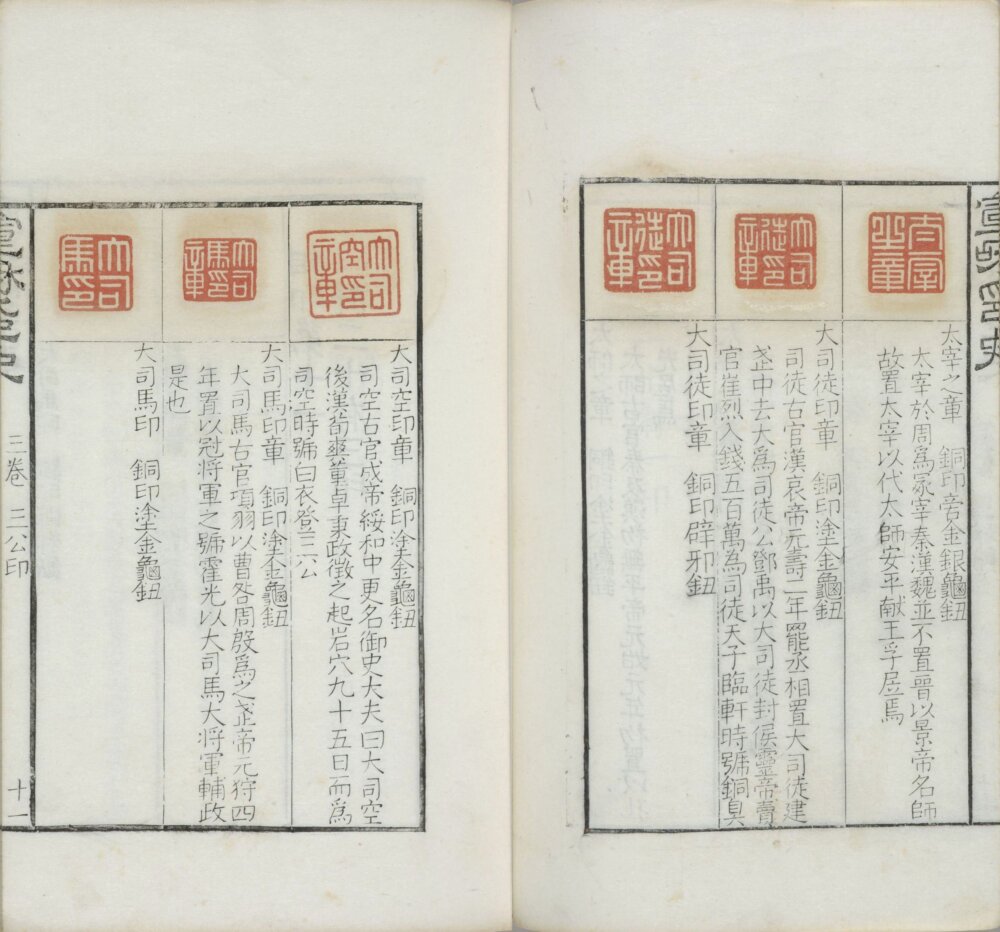 太宰之章
太宰之章　銅印旁金銀龜鈕
太宰於周爲冢宰秦漢魏並不置晉以景帝名師
故置太宰以代太師安平献王孚居焉
大司徒印章
大司徒印章　銅印塗金龜鈕
司徒古官漢哀帝元壽二年罷丞相置大司徒建
武中去大爲司徒公鄧禹以大司徒封侯靈帝賣
官崔烈入錢五百萬為司徒天子臨軒時號銅臭
大司徒印章
大司徒印章　銅印辟邪鈕
大司空印章
大司空印章　銅印塗金龜鈕
司空古官成帝綏和中更名御史大夫曰大司空
後漢荀爽董卓秉政徵之起岩穴九十五日而爲
司空時號白衣登三公
大司馬印章
大司馬印章　銅印塗金龜鈕
大司馬古官項羽以曹咎周殷爲之武帝元狩四
年置以冠將軍之號霍光以大司馬大将軍輔政
是也
大司馬印
大司馬印　銅印塗金龜鈕
三卷　三公印
十一